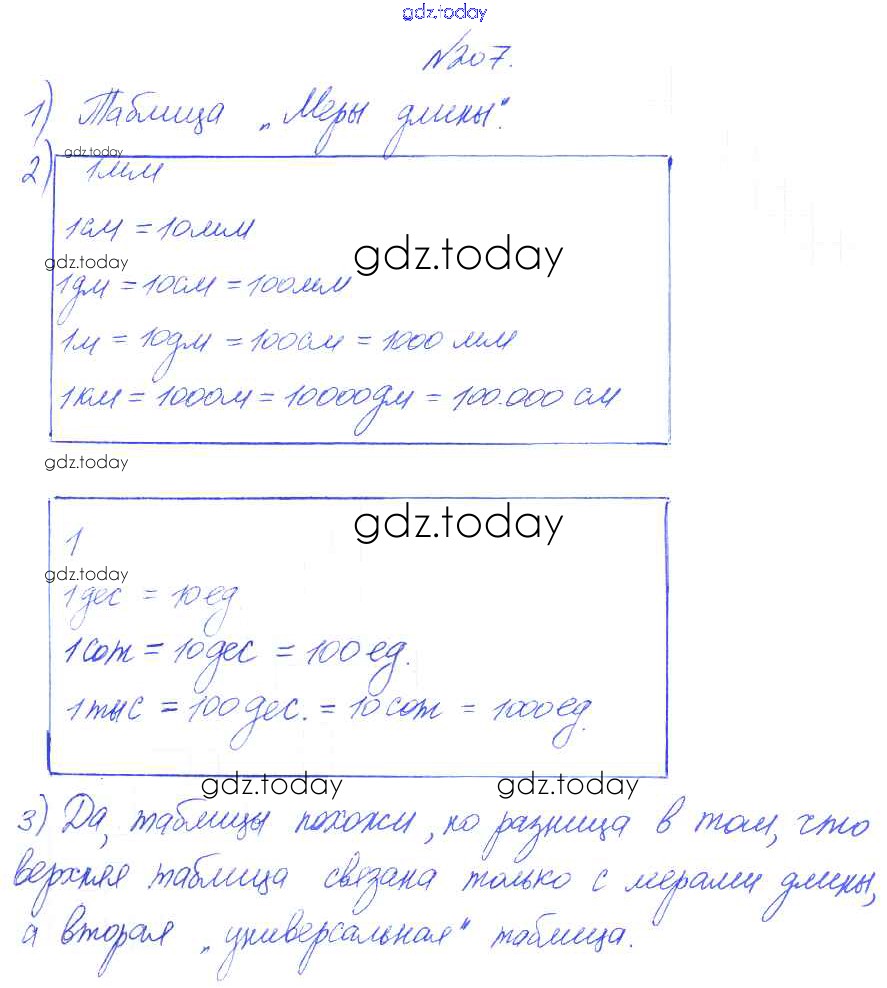 gdz.today
№207.
1) Таблица „Меры длины".
gdz.today
2) 1мм
1см = 10мм
gdz.today
gdz.today
1дм = 10см = 100мм
1м = 10дм = 100см = 1000 мм
1км = 1000м = 10000дм = 100.000 см
gdz.today
gdz.today
1
gdz.today
1дес = 10ед
1сот = 10дес = 100ед.
1тыс = 100дес. = 10сот = 1000ед.
gdz.today gdz.today
3) Да, таблицы похожи, но разница в том, что
верхняя таблица связана только с мерами длины,
а вторая „универсальная" таблица.